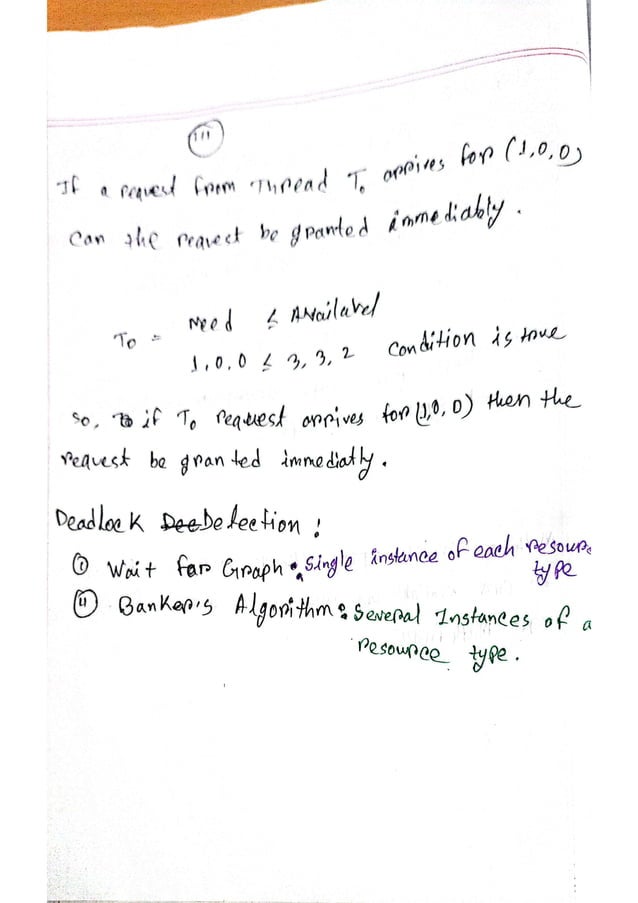 III
If a request from Thread T₀ arrives for (1,0,0)
Can the request be granted immediably.
T₀ = Need ≤ Availabel
1,0,0 ≤ 3,3,2 Condition is true
So, if T₀ request arrives for (1,0,0) then the
request be granted immediatly.
Deadlock Detection :
(i) Wait for Graph : Single instance of each resourc
type
(ii) Banker's Algorithm : Several Instances of a
resource type.